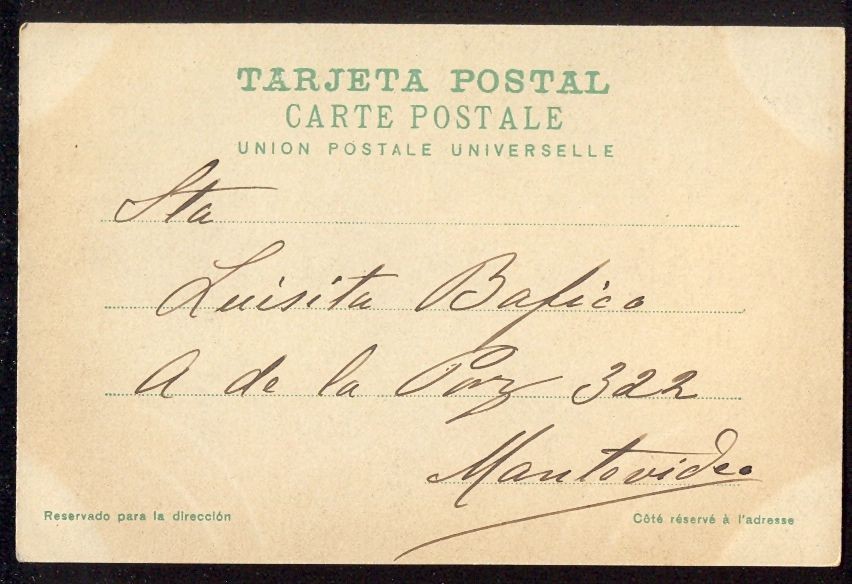 TARJETA POSTAL
CARTE POSTALE
UNION POSTALE UNIVERSELLE
Sta
Luisita Bafico
A de la Paz 322
Montevideo
Reservado para la dirección
Côté réservé à l'adresse